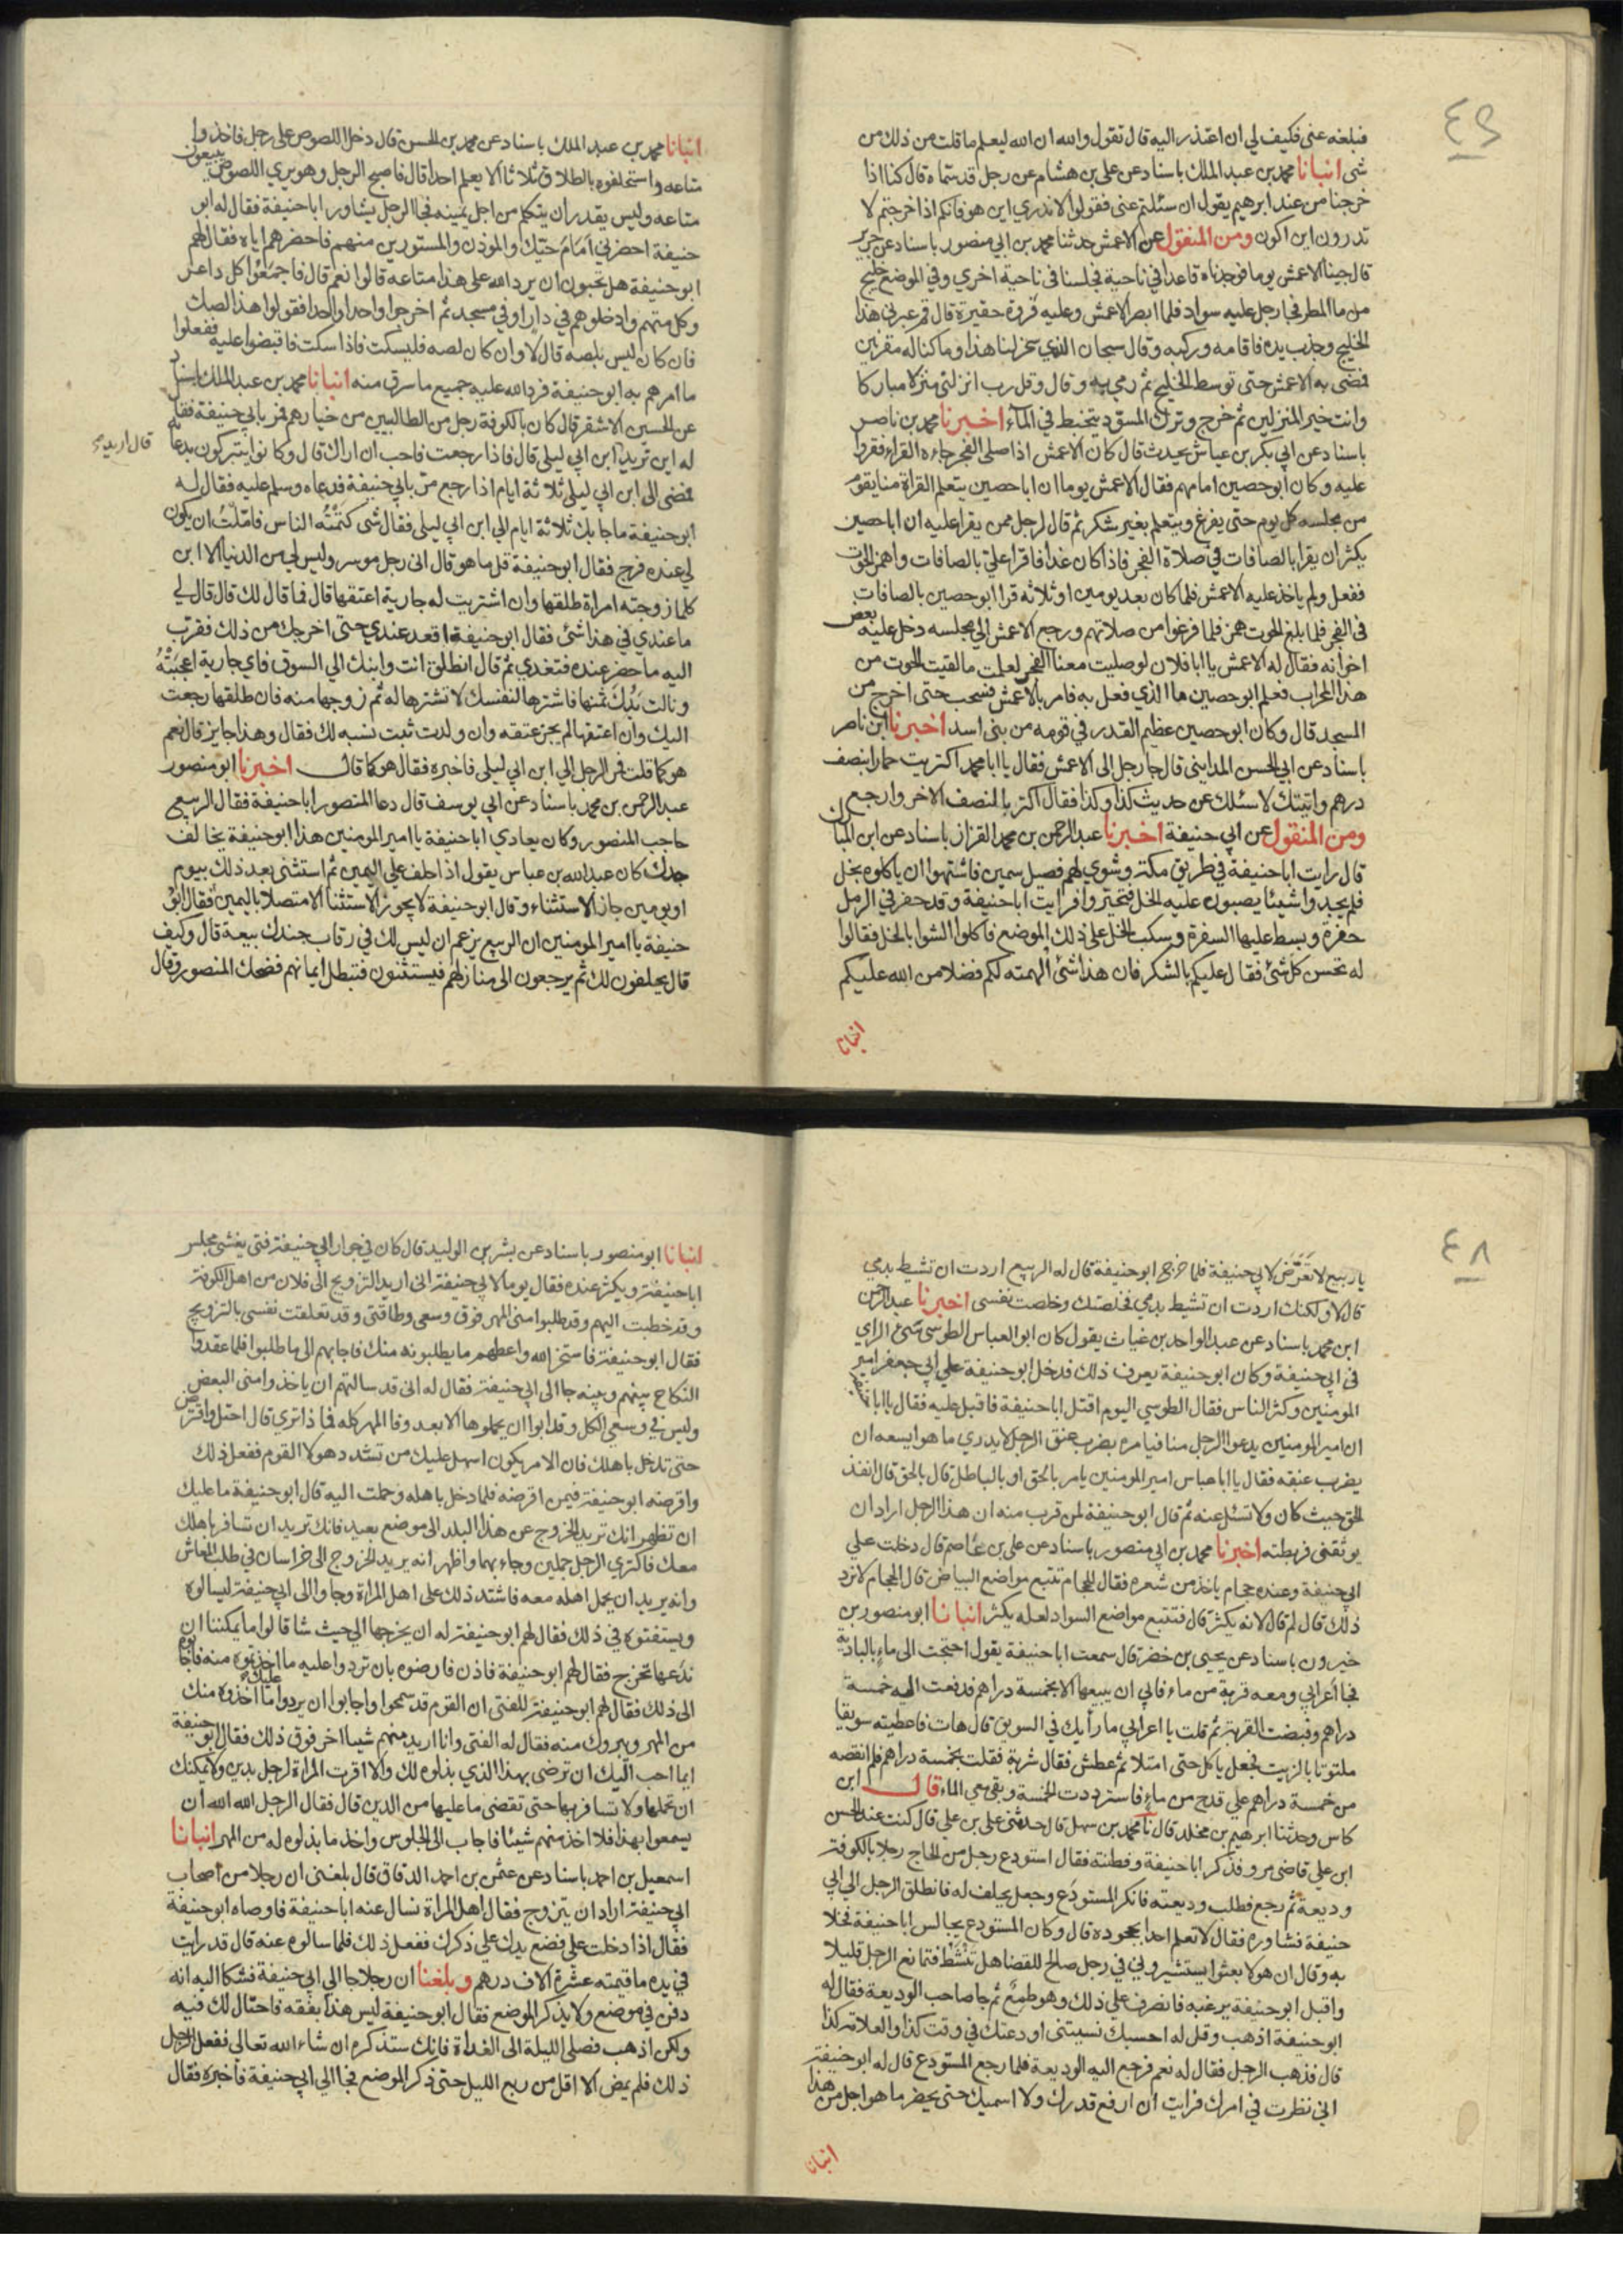 ٤٧
فبلغه عنى فكيف لي ان اعتذر اليه قال تقول والله ان الله ليعلم ما قلت من ذلك من
شى انبانا محمد بن عبد الملك باسناد عن على بن هشام عن رجل قد سماه قال كنا اذا
خرجنا من عند ابرهيم يقول ان سئلتم عنى فقولوا لا ندري اين هو فانكم اذا خرجتم لا
تدرون اين اكون ومن المنقول عن الاعمش حدثنا محمد بن ابي منصور باسناد عن جرير
قال جينا الاعمش يوما فوجدناه قاعدا في ناحية فجلسنا في ناحية اخري وفي الموضع خليج
من ما المطر فجا رجل عليه سواد فلما ابصر الاعمش وعليه فروة حقيرة قال قم عبرنى هذا
الخليج وجذب يده فاقامه وركبه وقال سبحان الذي سخر لنا هذا وما كنا له مقرنين
فمضى به الاعمش حتى توسط الخليج ثم رمي به وقال وقل رب انزلنى منزلا مباركا
وانت خير المنزلين ثم خرج وترك المسود يتخبط في الماء اخبرنا محمد بن ناصر
باسناد عن ابي بكر بن عياش يحدث قال كان الاعمش اذا صلى الفجر جاءه القراء فقروا
عليه وكان ابو حصين امامهم فقال الاعمش يوما ان ابا حصين يتعلم القراة منا يقوم
من مجلسه كل يوم حتى يفرغ ويتعلم بغير شكر ثم قال لرجل ممن يقرا عليه ان ابا حصين
يكثر ان يقرا بالصافات في صلاة الفجر فاذا كان غدا فاقرا علي بالصافات واهمز الحوت
ففعل ولم ياخذ عليه الاعمش فلما كان بعد يومين او ثلاثه قرا ابو حصين بالصافات
فى الفجر فلما بلغ الحوت همز فلما فرغوا من صلاتهم ورجع الاعمش الي مجلسه دخل عليه بعض
اخوانه فقال له الاعمش يا ابا فلان لو صليت معنا الفجر لعلمت ما لقيت الحوت من
هذا المحراب فعلم ابو حصين ما الذي فعل به فامر بالاعمش فسحب حتى اخرج من
المسجد قال وكان ابو حصين عظيم القدر في قومه من بنى اسد اخبرنا ابن ناصر
باسناد عن ابي الحسن المداينى قال جا رجل الى الاعمش فقال يا ابا محمد اكتريت حمارا بنصف
درهم واتيتك لاسئلك عن حديث كذا وكذا فقال اكتر بالنصف الاخر وارجع
ومن المنقول عن ابي حنيفة اخبرنا عبد الرحمن بن محمد القزاز باسناد عن ابن المبارك
قال رايت ابا حنيفة في طريق مكة وشوي لهم فصيل سمين فاشتهوا ان ياكلوه بخل
فلم يجدوا شيئا يصبون عليه الخل فتحيروا فرايت ابا حنيفة وقد حفر في الرمل
حفرة وبسط عليها السفرة وسكب الخل على ذلك الموضع فاكلوا الشوا بالخل فقالوا
له تحسن كل شئ فقال عليكم بالشكر فان هذا شئ الهمته لكم فضلا من الله عليكم
انبانا
انبانا محمد بن عبد الملك باسناد عن محمد بن الحسن قال دخل اللصوص على رجل فاخذوا
متاعه واستحلفوه بالطلاق ثلاثا الا يعلم احدا قال فاصبح الرجل وهو يري اللصوص يبيعون
متاعه وليس يقدر ان يتكلم من اجل يمينه فجا الرجل يشاور ابا حنيفة فقال له ابو
حنيفة احضرني امام حيك والموذن والمستورين منهم فاحضرهم اياه فقال لهم
ابو حنيفة هل تحبون ان يرد الله على هذا متاعه قالوا نعم قال فاجمعوا كل داعر
وكل متهم وادخلوهم في دار او في مسجد ثم اخرجوا واحدا واحدا فقولوا هذا لصك
فان كان ليس بلصه قال لا وان كان لصه فليسكت فاذا سكت فاقبضوا عليه ففعلوا
ما امرهم به ابو حنيفة فرد الله عليه جميع ما سرق منه انبانا محمد بن عبد الملك باسناد
عن الحسين الاشقر قال كان بالكوفة رجل من الطالبيين من خيارهم فمر بابي حنيفة فقال
له اين تريد ابن ابي ليلى قال فاذا رجعت فاحب ان اراك قال وكانوا يتبركون بدعائه
قال اريد
فمضى الى ابن ابي ليلى ثلاثة ايام اذا رجع مر بابي حنيفة فدعاه وسلم عليه فقال له
ابو حنيفة ما جا بك ثلاثة ايام الي ابن ابي ليلى فقال شى كتمته الناس فاملت ان يكون
لي عنده فرج فقال ابو حنيفة قل ما هو قال انى رجل موسر وليس لي من الدنيا الا ابن
كلما زوجته امراة طلقها وان اشتريت له جارية اعتقها قال فما قال لك قال قال لي
ما عندي في هذا شئ فقال ابو حنيفة اقعد عندي حتى اخرجك من ذلك فقرب
اليه ما حضر عنده فتغدي ثم قال انطلق انت وابنك الي السوق فاي جارية اعجبته
ونالت يدك ثمنها فاشترها لنفسك لا تشترها له ثم زوجها منه فان طلقها رجعت
اليك وان اعتقها لم يجز عتقه وان ولدت ثبت نسبه لك فقال وهذا جايز قال نعم
هو كما قلت فمر الرجل الي ابن ابي ليلى فاخبره فقال هو كما قال اخبرنا ابو منصور
عبد الرحمن بن محمد باسناد عن ابي يوسف قال دعا المنصور ابا حنيفة فقال الربيع
حاجب المنصور وكان يعادي ابا حنيفة يا امير المومنين هذا ابو حنيفة يخالف
جدك كان عبد الله بن عباس يقول اذا حلف علي اليمين ثم استثنى بعد ذلك بيوم
او يومين جاز الاستثناء وقال ابو حنيفة لا يجوز الاستثنا الا متصلا باليمين فقال ابو
حنيفة يا امير المومنين ان الربيع يزعم ان ليس لك في رقاب جندك بيعة قال وكيف
قال يحلفون لك ثم يرجعون الى منازلهم فيستثنون فتبطل ايمانهم فضحك المنصور وقال
٤٨
يا ربيع لا تعرض لابي حنيفة فلما خرج ابو حنيفة قال له الربيع اردت ان تشيط بدمي
قال لا ولكنك اردت ان تشيط بدمي فخلصتك وخلصت نفسى اخبرنا عبد الرحمن
ابن محمد باسناد عن عبد الواحد بن غياث يقول كان ابو العباس الطوسى سئ الراي
فى ابي حنيفة وكان ابو حنيفة يعرف ذلك فدخل ابو حنيفة علي ابي جعفر امير
المومنين وكثر الناس فقال الطوسي اليوم اقتل ابا حنيفة فاقبل عليه فقال يا ابا حنيفة
ان امير المومنين يدعوا الرجل منا فيامره بضرب عنق الرجل لا يدري ما هو ايسعه ان
يضرب عنقه فقال يا ابا عباس امير المومنين يامر بالحق او بالباطل قال بالحق قال انفذ
الحق حيث كان ولا تسئل عنه ثم قال ابو حنيفة لمن قرب منه ان هذا الرجل اراد ان
يوثقنى فربطته اخبرنا محمد بن ابي منصور باسناد عن على بن عاصم قال دخلت علي
ابي حنيفة وعنده حجام ياخذ من شعره فقال للحجام تتبع مواضع البياض قال الحجام لا تزد
ذلك قال لم قال لانه يكثر قال فتتبع مواضع السواد لعله يكثر انبانا ابو منصور بن
خيرون باسناد عن يحيى بن خضر قال سمعت ابا حنيفة يقول احتجت الى ماء بالبادية
فجا اعرابي ومعه قربة من ماء فابي ان يبيعها الا بخمسة دراهم فدفعت اليه خمسة
دراهم وقبضت القربة ثم قلت يا اعرابي ما رأيك في السويق قال هات فاعطيته سويقا
ملتوتا بالزيت فجعل ياكل حتى امتلا ثم عطش فقال شربة فقلت بخمسة دراهم فلم انقصه
من خمسة دراهم علي قدح من ماء فاسترددت الخمسة وبقى معي الماء قال ابن
كاس وحدثنا ابرهيم بن مخلد قال نا محمد بن سهل قال حدثنى على بن علي قال كنت عند الحسن
ابن علي قاضى مرو فذكر ابا حنيفة وفطنته فقال استودع رجل من الحاج رجلا بالكوفة
وديعة ثم رجع فطلب وديعته فانكر المستودع وجعل يحلف له فانطلق الرجل الي ابي
حنيفة فشاوره فقال لا تعلم احدا بجحوده قال وكان المستودع يجالس ابا حنيفة فخلا
به وقال ان هولا بعثوا يستشيروني في رجل صالح للقضا هل تنشط فتمانع الرجل قليلا
واقبل ابو حنيفة يرغبه فانصرف علي ذلك وهو طمع ثم جا صاحب الوديعة فقال له
ابو حنيفة اذهب وقل له احسبك نسيتنى اودعتك في وقت كذا والعلامة كذا
قال فذهب الرجل فقال له نعم فرجع اليه الوديعة فلما رجع المستودع قال له ابو حنيفة
اني نظرت في امرك فرايت ان ارفع قدرك ولا اسميك حتى يحضر ما هو اجل من هذا
انبانا
انبانا ابو منصور باسناد عن بشر بن الوليد قال كان في جوار ابي حنيفة فتى يغشى مجلس
ابا حنيفة ويكثر عنده فقال يوما لابي حنيفة انى اريد التزويج الى فلان من اهل الكوفة
وقد خطبت اليهم وقد طلبوا منى المهر فوق وسعى وطاقتى وقد تعلقت نفسى بالتزويج
فقال ابو حنيفة فاستخر الله واعطهم ما يطلبونه منك فاجابهم الى ما طلبوا فلما عقدوا
النكاح بينهم وبينه جا الى ابي حنيفة فقال له انى قد سالتهم ان ياخذوا منى البعض
وليس في وسعي الكل وقد ابوا ان يحملوها الا بعد وفا المهر كله فما ذا تري قال احتل واقترض
حتى تدخل باهلك فان الامر يكون اسهل عليك من تشدد هولا القوم ففعل ذلك
واقرضه ابو حنيفة فيمن اقرضه فلما دخل باهله وحملت اليه قال ابو حنيفة ما عليك
ان تظهر انك تريد الخروج عن هذا البلد الى موضع بعيد فانك تريد ان تسافر باهلك
معك فاكتري الرجل جملين وجاء بهما واظهر انه يريد الخروج الى خراسان في طلب المعاش
وانه يريد ان يحمل اهله معه فاشتد ذلك على اهل المراة وجاوا الى ابي حنيفة ليسالوه
ويستفتوه في ذلك فقال لهم ابو حنيفة له ان يخرجها الي حيث شا قالوا ما يمكننا ان
ندعها تخرج فقال لهم ابو حنيفة فاذن فارضوه بان تردوا عليه ما اخذتموه منه فاجابوه
الى ذلك فقال لهم ابو حنيفة للفتى ان القوم قد سمحوا واجابوا ان يردوا عليك ما اخذوه منك
من المهر ويبروك منه فقال له الفتى وانا اريد منهم شيا اخر فوق ذلك فقال ابو حنيفة
ايما احب اليك ان ترضى بهذا الذي بذلوه لك والا اقرت المراة لرجل بدين ولا يمكنك
ان تحملها ولا تسافر بها حتى تقضى ما عليها من الدين قال فقال الرجل الله الله ان
يسمعوا بهذا فلا اخذ منهم شيئا فاجاب الى الجلوس واخذ ما بذلوه له من المهر انبانا
اسمعيل بن احمد باسناد عن عثمن بن احمد الدقاق قال بلغنى ان رجلا من اصحاب
ابي حنيفة اراد ان يتزوج فقال اهل المراة نسال عنه ابا حنيفة فاوصاه ابو حنيفة
فقال اذا دخلت علي فضع يدك علي ذكرك ففعل ذلك فلما سالوه عنه قال قد رايت
في يده ما قيمته عشرة الاف درهم وبلغنا ان رجلا جا الي ابي حنيفة فشكا اليه انه
دفن في موضع ولا يذكر الموضع فقال ابو حنيفة ليس هذا بفقه فاحتال لك فيه
ولكن اذهب فصلى الليلة الى الغداة فانك ستذكره ان شاء الله تعالى ففعل الرجل
ذلك فلم يمض الا اقل من ربع الليل حتى ذكر الموضع فجا الي ابي حنيفة فاخبره فقال